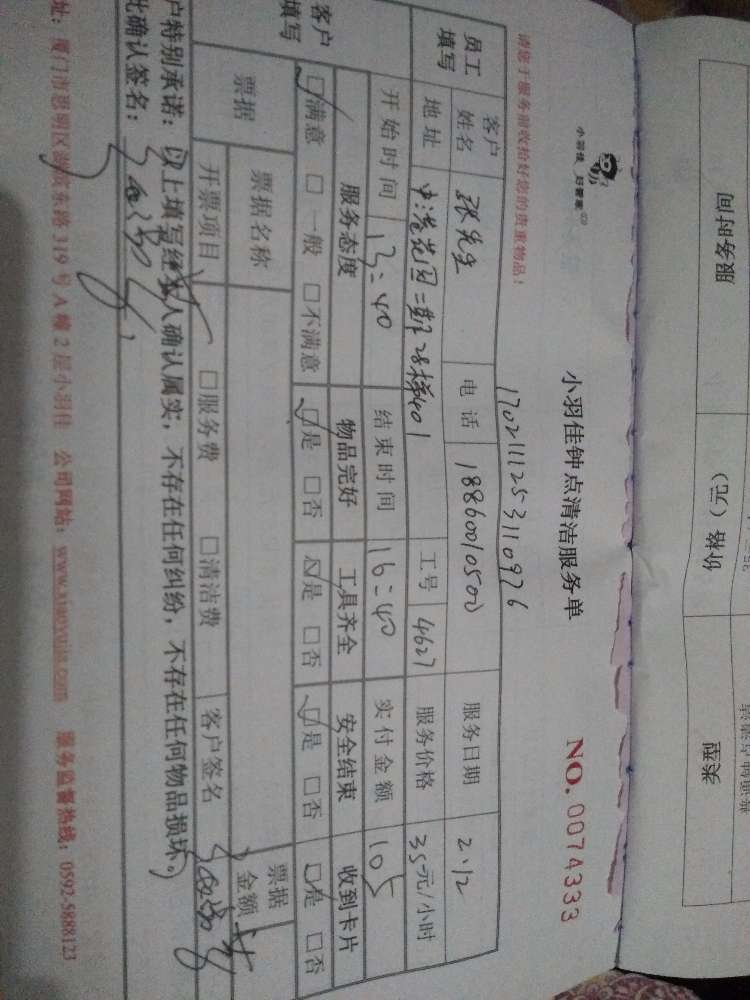 小羽佳 好管家
小羽佳钟点清洁服务单
NO. 0074333
请您于服务前收拾好您的贵重物品！
1702111253110926
员工填写
客户姓名 张先生 电话 18860010500 服务日期 2.12
地址 中港花园二期28梯401 工号 4627 服务价格 35元/小时
开始时间 13:40 结束时间 16:40 实付金额 105
客户填写
服务态度 物品完好 工具齐全 安全结束 收到卡片
☑满意 □一般 □不满意 ☑是 □否 ☑是 □否 ☑是 □否 ☑是 □否
票据 票据名称 票据金额
开票项目 □服务费 □清洁费 客户签名
户特别承诺：以上填写经本人确认属实，不存在任何纠纷，不存在任何物品损坏。）
此确认签名：
址：厦门市思明区湖滨东路319号A幢2层小羽佳 公司网站：www.xiaoyujia.com 服务监督热线：0592-5888123
服务时间 价格（元） 类型